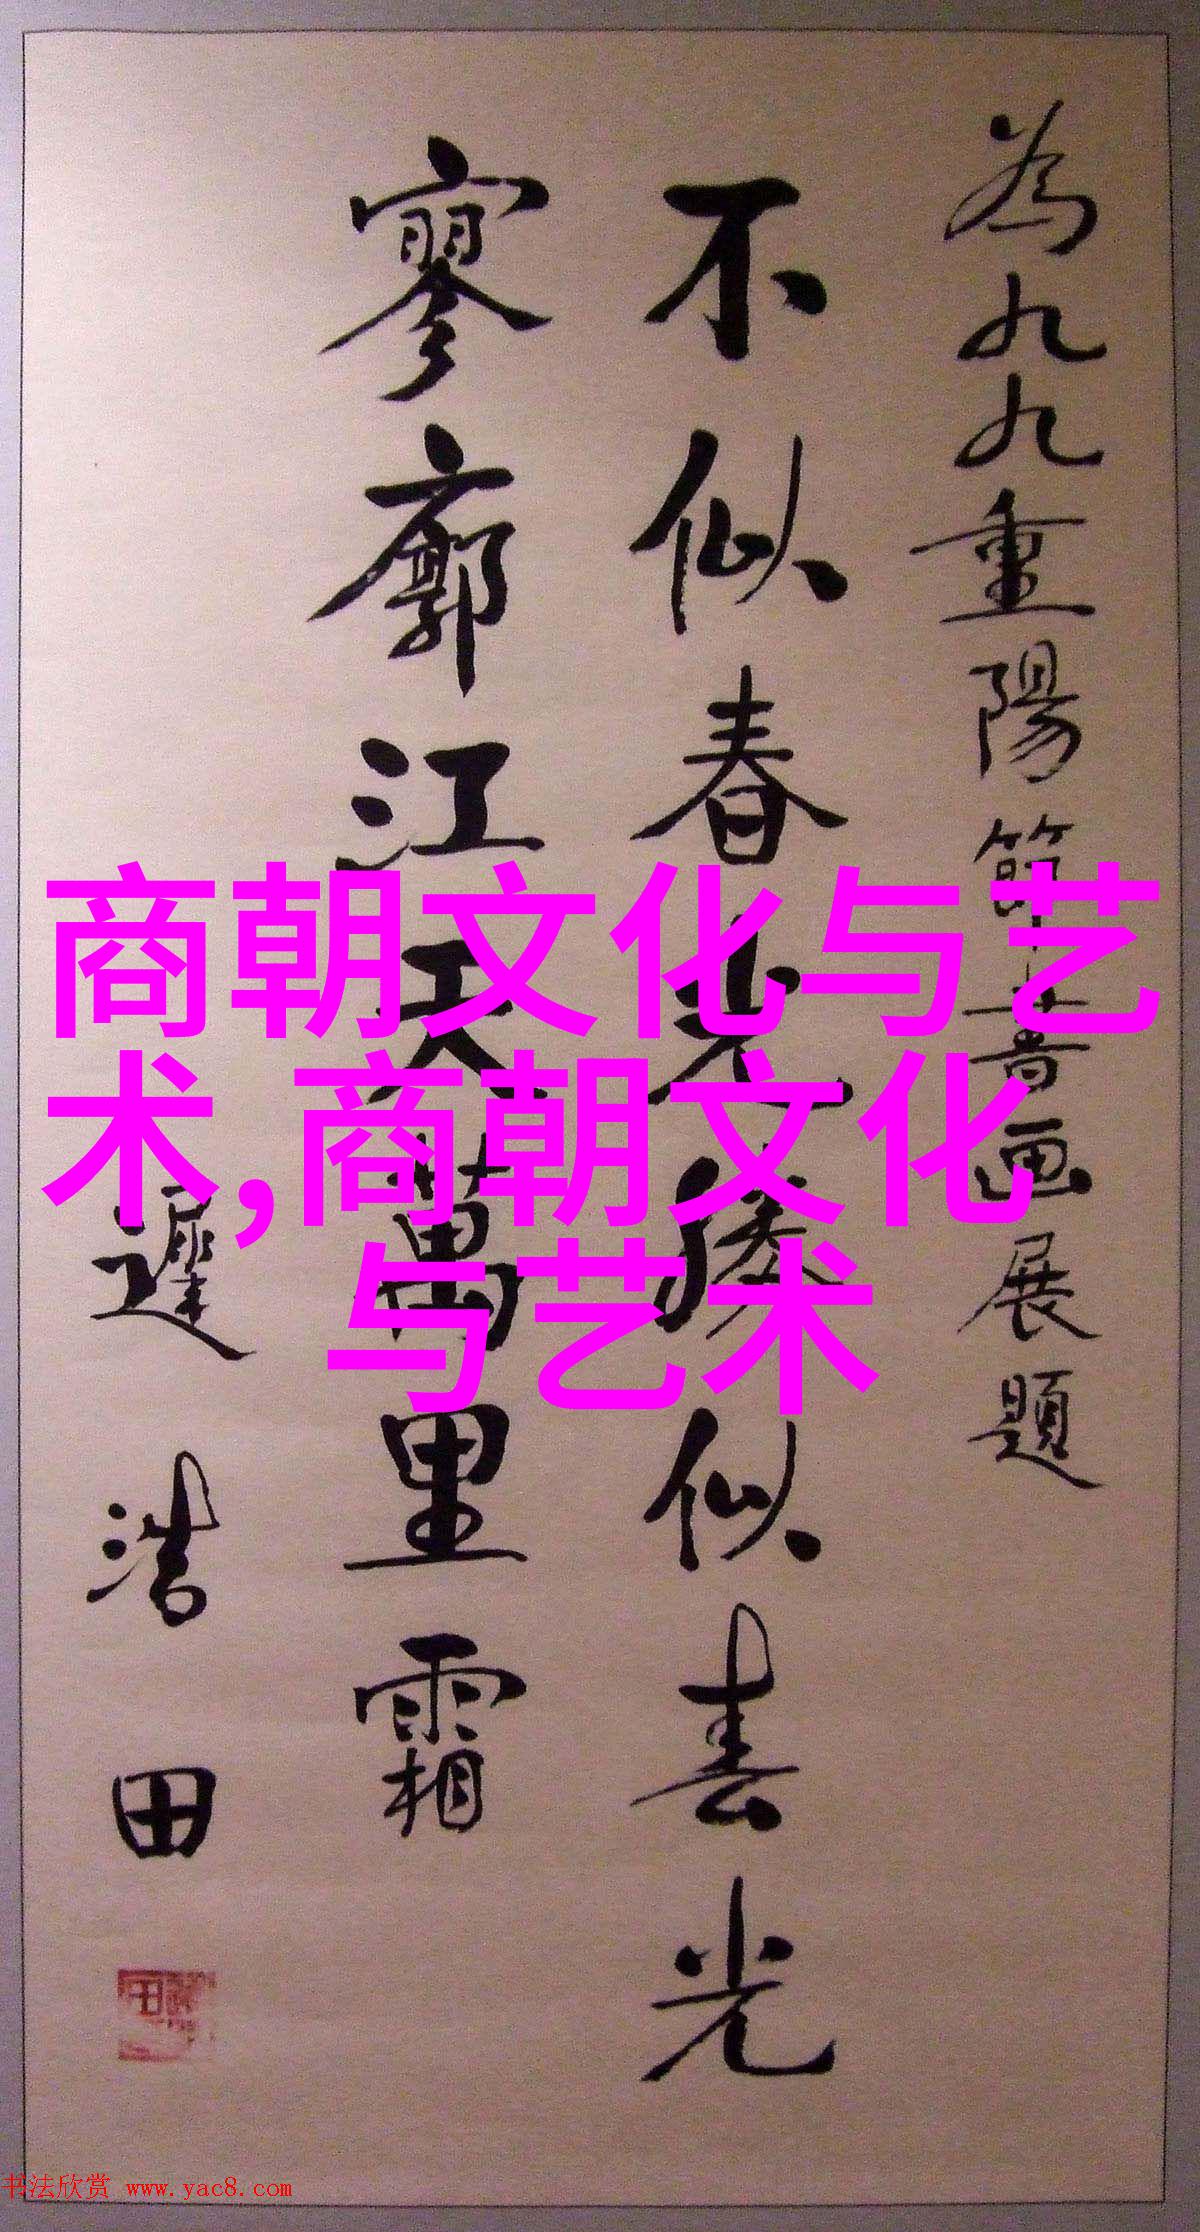 為九九重陽節書画展題
不似春光勝似春光
寥廓江天萬里霜
遲浩田
商朝文化与艺
术,商朝文化
与艺术
书法欣赏 www.yac8.com